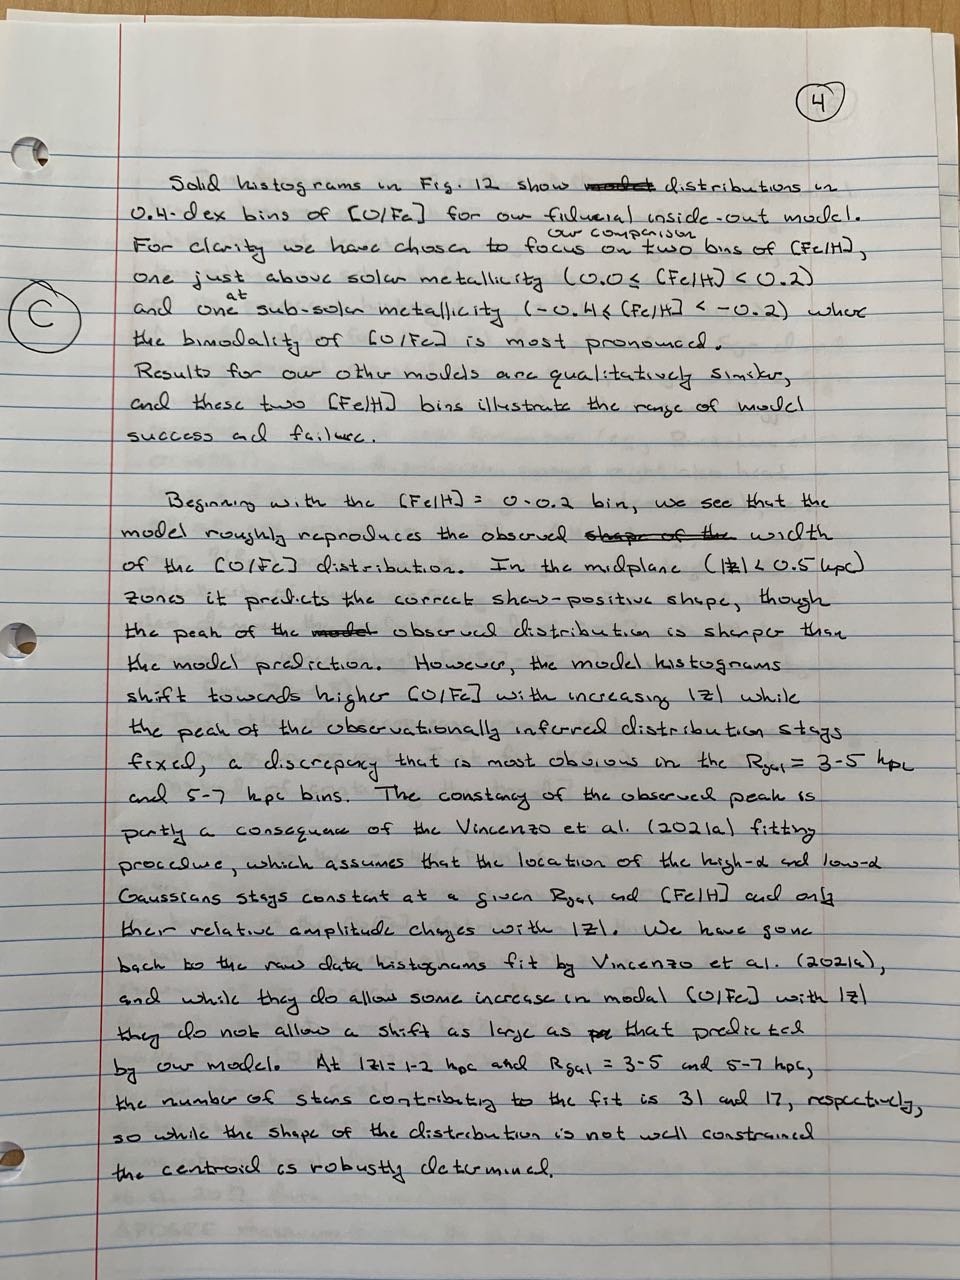 4
Solid histograms in Fig. 12 show distributions in
0.4-dex bins of [O/Fe] for our fiducial inside-out model.
our comparison
For clarity we have chosen to focus on two bins of [Fe/H],
one just above solar metallicity (0.0 ≤ [Fe/H] < 0.2)
at
and one sub-solar metallicity (-0.4 ≤ [Fe/H] < -0.2) where
C
the bimodality of [O/Fe] is most pronounced.
Results for our other models are qualitatively similar,
and these two [Fe/H] bins illustrate the range of model
success and failure.
Beginning with the [Fe/H] = 0-0.2 bin, we see that the
model roughly reproduces the observed shape of the width
of the [O/Fe] distribution. In the midplane (|z| < 0.5 kpc)
zones it predicts the correct skew-positive shape, though
the peak of the model observed distribution is sharper than
the model prediction. However, the model histograms
shift towards higher [O/Fe] with increasing |z| while
the peak of the observationally inferred distribution stays
fixed, a discrepancy that is most obvious in the Rgal = 3-5 kpc
and 5-7 kpc bins. The constancy of the observed peak is
partly a consequence of the Vincenzo et al. (2021a) fitting
procedure, which assumes that the location of the high-α and low-α
Gaussians stays constant at a given Rgal and [Fe/H] and only
their relative amplitude changes with |z|. We have gone
back to the raw data histograms fit by Vincenzo et al. (2021a),
and while they do allow some increase in modal [O/Fe] with |z|
they do not allow a shift as large as that predicted
by our model. At |z| = 1-2 kpc and Rgal = 3-5 and 5-7 kpc,
the number of stars contributing to the fit is 31 and 17, respectively,
so while the shape of the distribution is not well constrained
the centroid is robustly determined.